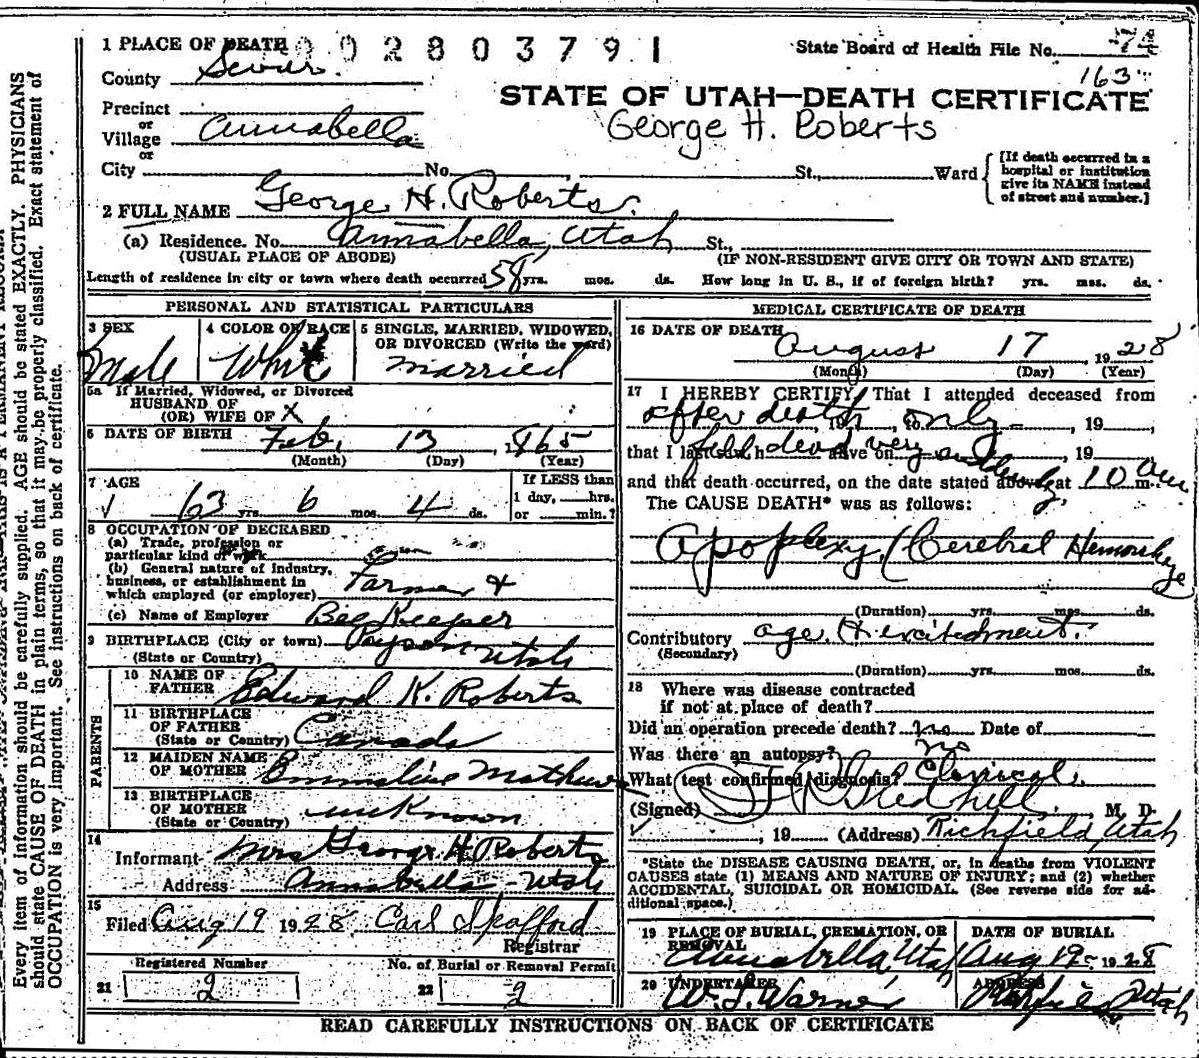 1 PLACE OF DEATH 002803791
State Board of Health File No. 74
County Sevier
163
STATE OF UTAH—DEATH CERTIFICATE
Precinct
or
Village Annabella
George H. Roberts
or
City No. St., Ward
[If death occurred in a
hospital or institution
give its NAME instead
of street and number.]
2 FULL NAME George H. Roberts.
(a) Residence. No. Annabella, Utah St.,
(USUAL PLACE OF ABODE) (IF NON-RESIDENT GIVE CITY OR TOWN AND STATE)
Length of residence in city or town where death occurred 58 yrs. mos. ds. How long in U. S., if of foreign birth? yrs. mos. ds.
PERSONAL AND STATISTICAL PARTICULARS
3 SEX
Male
4 COLOR OR RACE
White
5 SINGLE, MARRIED, WIDOWED,
OR DIVORCED (Write the word)
married
5a If Married, Widowed, or Divorced
HUSBAND OF
(OR) WIFE OF X
6 DATE OF BIRTH Feb. 13 1865
(Month) (Day) (Year)
7 AGE
63 yrs. 6 mos. 4 ds.
If LESS than
1 day, hrs.
or min.?
8 OCCUPATION OF DECEASED
(a) Trade, profession or
particular kind of work
(b) General nature of industry,
business, or establishment in
which employed (or employer) Farmer +
(c) Name of Employer Bee Keeper
9 BIRTHPLACE (City or town) Payson Utah
(State or Country)
PARENTS
10 NAME OF
FATHER Edward K. Roberts
11 BIRTHPLACE
OF FATHER Canada
(State or Country)
12 MAIDEN NAME
OF MOTHER Emmaline Mathews
13 BIRTHPLACE
OF MOTHER unknown
(State or Country)
14
Informant Mrs George H. Roberts
Address Annabella - Utah
15
Filed Aug 19 1928 Carl Spafford
Registrar
Registered Number No. of Burial or Removal Permit
21 2 22 2
MEDICAL CERTIFICATE OF DEATH
16 DATE OF DEATH
August 17, 1928
(Month) (Day) (Year)
17 I HEREBY CERTIFY, That I attended deceased from
after death, 19 , to only - , 19 ,
that I last saw h alive on , 19
fell dead very suddenly
and that death occurred, on the date stated above, at 10 am m.
The CAUSE DEATH* was as follows:
Apoplexy (Cerebral Hemorrhage
(Duration) yrs. mos. ds.
Contributory age & excitedment.
(Secondary)
(Duration) yrs. mos. ds.
18 Where was disease contracted
if not at place of death?
Did an operation precede death? no Date of
Was there an autopsy? no
What test confirmed diagnosis? Clinical.
(Signed) M. D.
, 19 (Address) Richfield, Utah
*State the DISEASE CAUSING DEATH, or, in deaths from VIOLENT
CAUSES state (1) MEANS AND NATURE OF INJURY; and (2) whether
ACCIDENTAL, SUICIDAL OR HOMICIDAL. (See reverse side for ad-
ditional space.)
19 PLACE OF BURIAL, CREMATION, OR
REMOVAL
Annabella, Utah
DATE OF BURIAL
Aug 19 - 1928
20 UNDERTAKER
W. L. Warner
ADDRESS
Richfield, Utah
READ CAREFULLY INSTRUCTIONS ON BACK OF CERTIFICATE
Every item of information should be carefully supplied. AGE should be stated EXACTLY. PHYSICIANS
should state CAUSE OF DEATH in plain terms, so that it may be properly classified. Exact statement of
OCCUPATION is very important. See instructions on back of certificate.